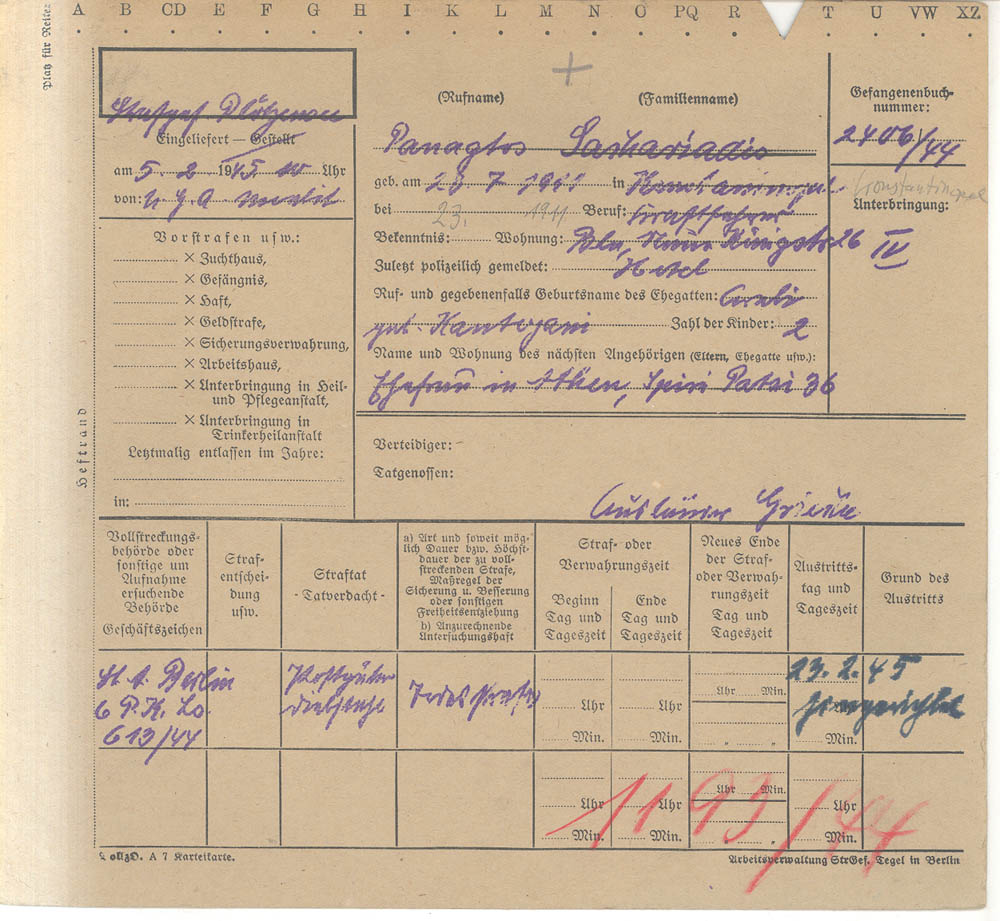 A B CD E F G H I K L M N O PQ R T U VW XZ
Platz für Reiter
Heftrand
Strafgef. Plötzensee
Eingeliefert — Gestellt
am 5. 2. 1945 10 Uhr
von: U. G. A. Moabit
Vorstrafen usw.:
× Zuchthaus,
× Gefängnis,
× Haft,
× Geldstrafe,
× Sicherungsverwahrung,
× Arbeitshaus,
× Unterbringung in Heil-
und Pflegeanstalt,
× Unterbringung in
Trinkerheilanstalt
Letztmalig entlassen im Jahre:
in:
(Rufname) (Familienname)
Panagtos Sachariadis
geb. am 23 7 1911 in Konstantinopel
Konstantinopel
bei 23. 1911 Beruf: Kraftfahrer
Bekenntnis: Wohnung: Bln, Neue Königstr 26
Zuletzt polizeilich gemeldet: Hotel
Ruf- und gegebenenfalls Geburtsname des Ehegatten:
geb. Zahl der Kinder: 2
Name und Wohnung des nächsten Angehörigen (Eltern, Ehegatte usw.):
Ehefrau in Athen, Spiri Patsi 36
Gefangenenbuch-
nummer:
2406/44
Unterbringung:
IV
Verteidiger:
Tatgenossen:
Ausländer Grieche
Vollstreckungs-
behörde oder
sonstige um
Aufnahme
ersuchende
Behörde
Geschäftszeichen
Straf-
entschei-
dung
usw.
Straftat
- Tatverdacht -
a) Art und soweit mög-
lich Dauer bzw. Höchst-
dauer der zu voll-
streckenden Strafe,
Maßregel der
Sicherung u. Besserung
oder sonstigen
Freiheitsentziehung
b) Anzurechnende
Untersuchungshaft
Straf- oder
Verwahrungszeit
Beginn
Tag und
Tageszeit
Ende
Tag und
Tageszeit
Neues Ende
der Straf-
oder Verwah-
rungszeit
Tag und
Tageszeit
Austritts-
tag und
Tageszeit
Grund des
Austritts
St. A. Berlin
6 P. K. Ls
613/44
Postgüter
diebstahl
Todesstrafe
Uhr Uhr Uhr Min.
Min. Min. " " Min.
23. 2. 45
hingerichtet
Uhr Uhr Uhr Min. Uhr
Min. Min. " " Min.
1193/44
VollzO. A 7 Karteikarte.
Arbeitsverwaltung StrGef. Tegel in Berlin